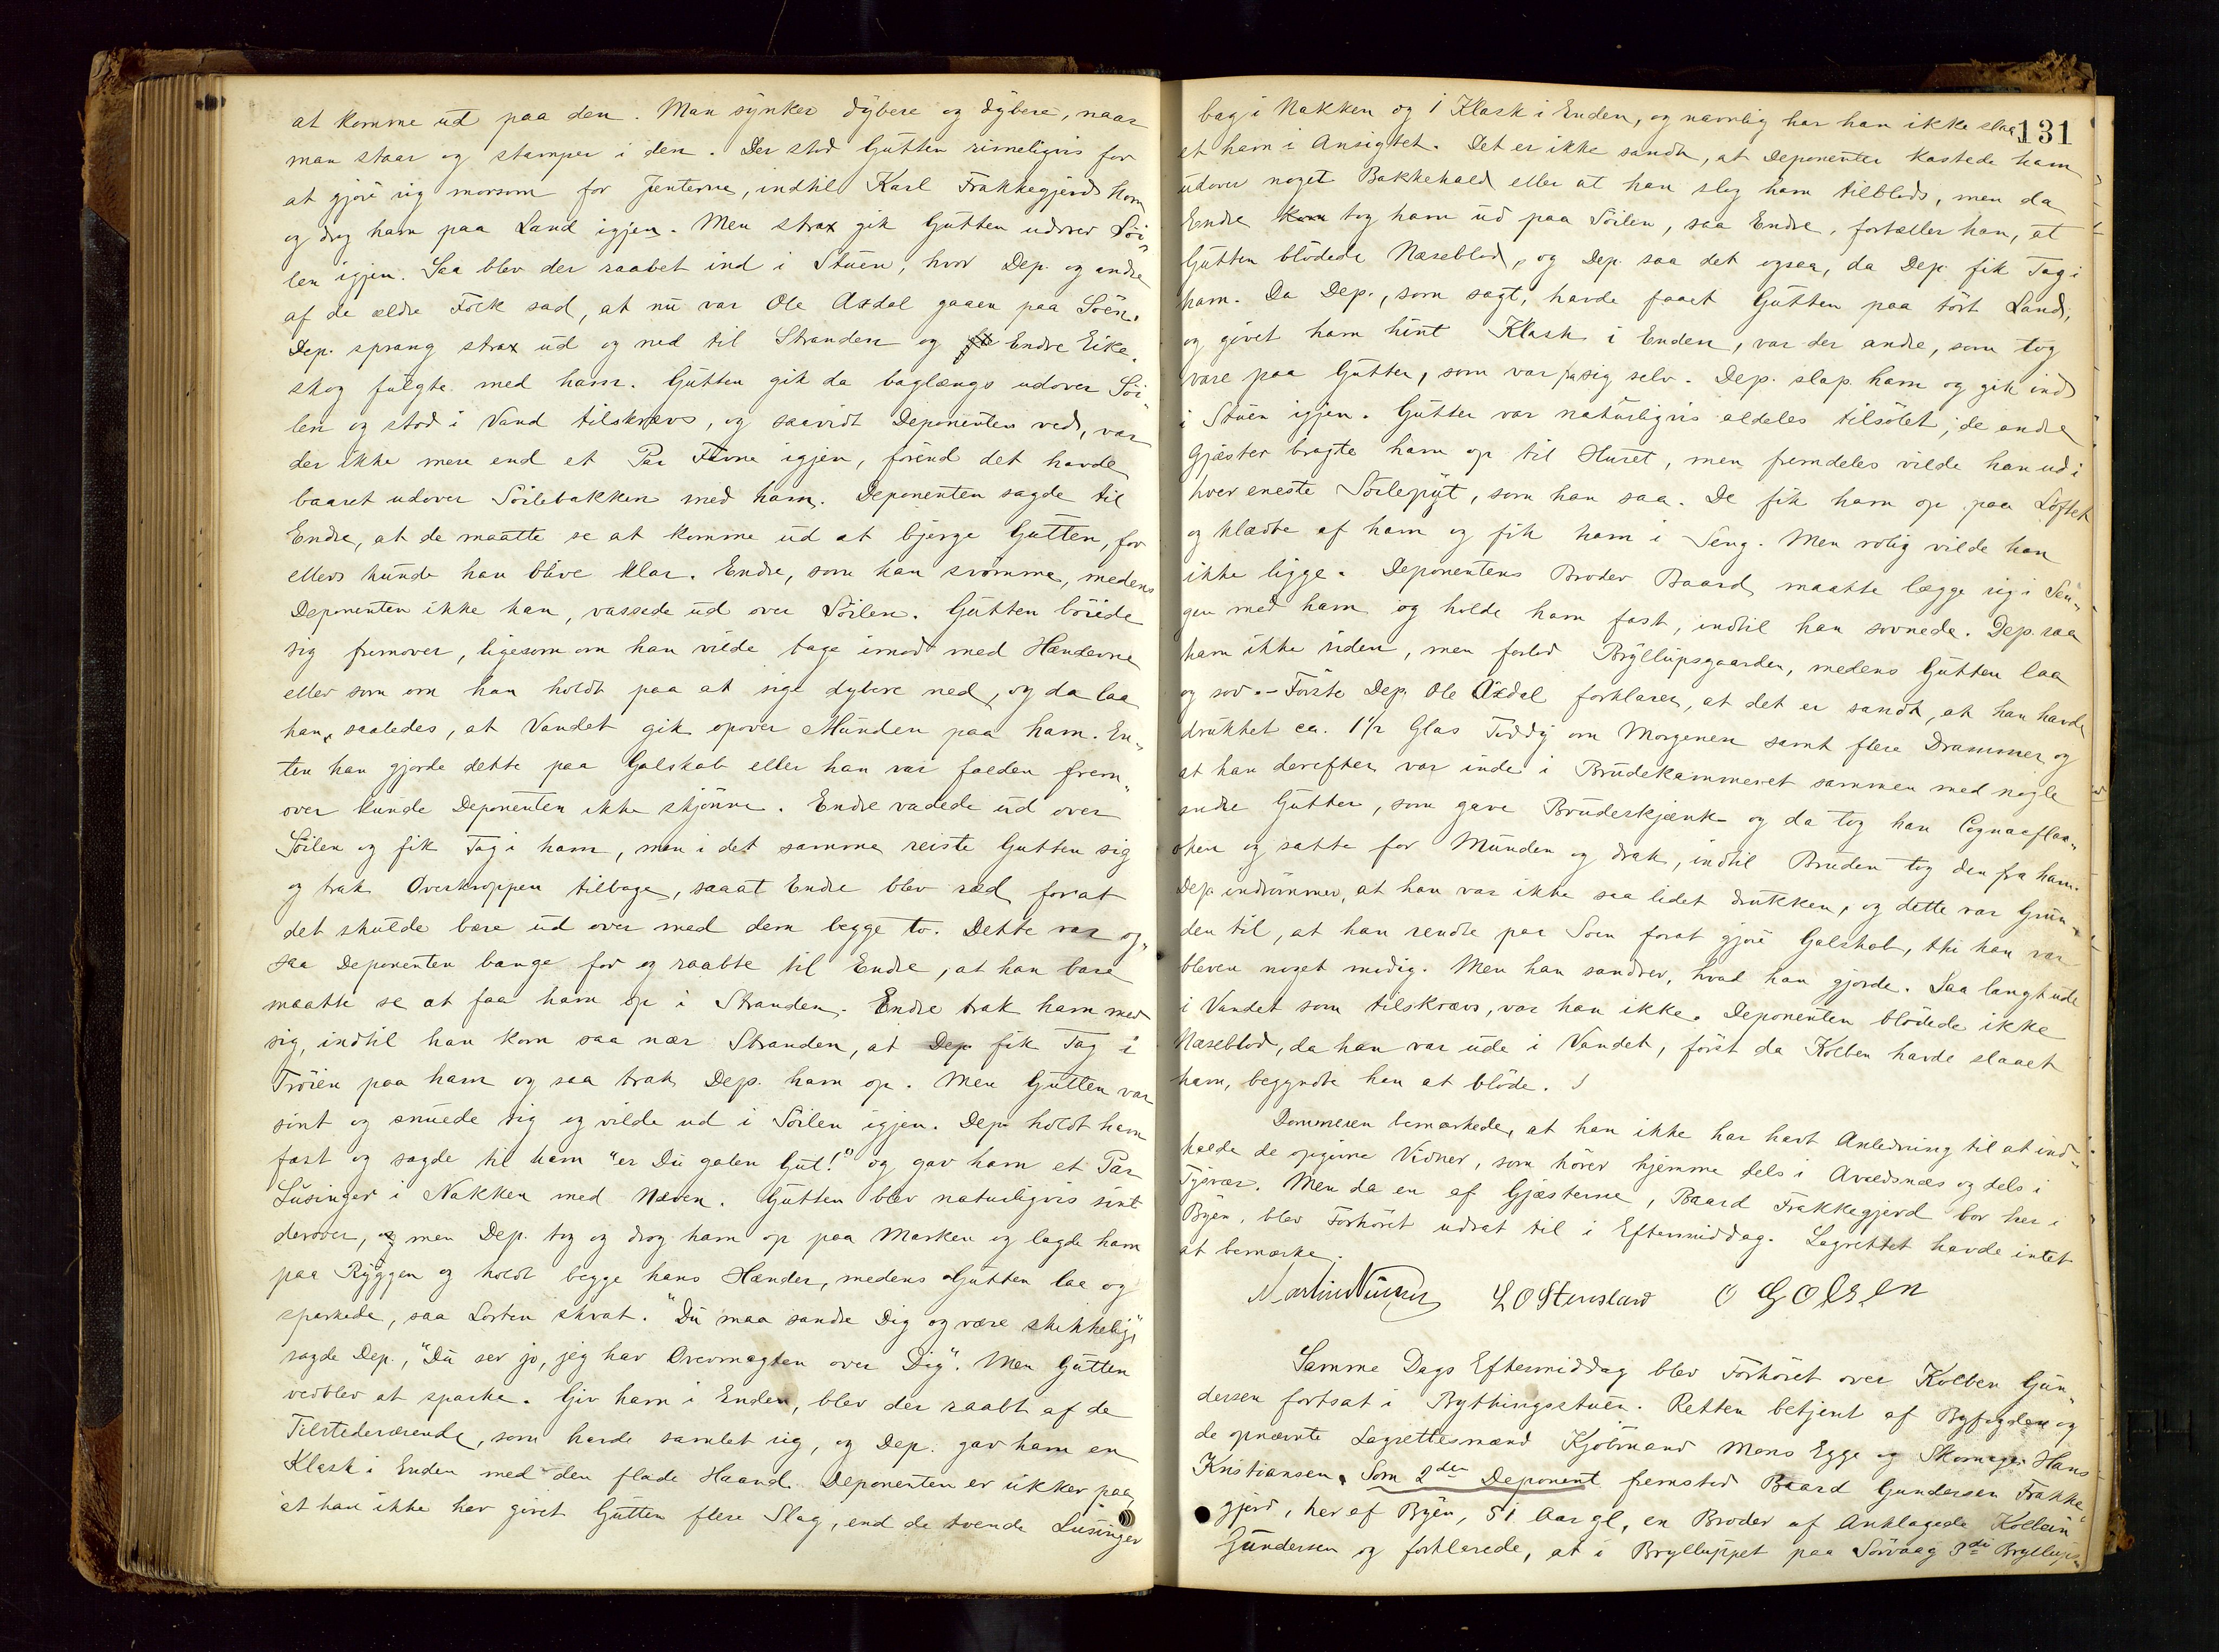 at komme ud paa den. Man synker dybere og dybere, naar
man staar og stamper i den. Der stod Gutten rimeligvis for
at gjöre sig morsom for Jenterne, indtil Karl Frakkegjerd kom
og drog ham paa Land igjen. Men strax gik Gutten udover Söi-
len igjen. Saa blev der raabet ind i Stuen, hvor Dep. og andre
af de ældre Folk sad, at nu var Ole Axdal gaaen paa Söen.
Dep. sprang strax ud og ned til Stranden og Endre Eike-
skog fulgte med ham. Gutten gik da baglængs udover Söi-
len og stod i Vand tilskrævs, og saavidt Deponenten ved, var
der ikke mere end et Par Favne igjen, förend det havde
baaret udover Söilebakken med ham. Deponenten sagde til
Endre, at de maatte se at komme ud at bjerge Gutten, for
ellers kunde han blive klar. Endre, som kan svömme, medens
Deponenten ikke kan, vassede ud over Söilen. Gutten böiede
sig fremover, ligesom om han vilde tage imod med Hænderne
eller som om han holdt paa at sige dybere ned, og da laa
han saaledes, at Vandet gik opover Munden paa ham. En-
ten han gjorde dette paa Galskab eller han var falden frem-
over kunde Deponenten ikke skjönne. Endre vadede ud over
Söilen og fik Tag i ham, men i det samme reiste Gutten sig
og trak Overkroppen tilbage, saaat Endre blev ræd forat
det skulde bære ud over med dem begge to. Dette var og-
saa Deponenten bange for og raabte til Endre, at han bare
maatte se at faa ham op i Stranden. Endre trak ham med
sig, indtil han kom saa nær Stranden, at Dep fik Tag i
Tröien paa ham og saa trak Dep. ham op. Men Gutten var
sint og snuede sig og vilde ud i Söilen igjen. Dep. holdt ham
fast og sagde til ham "er Du galen Gut!" og gav ham et Par
Lusinger i Nakken med Næven. Gutten blev naturligvis sint
derover, og men Dep. tog og drog ham op paa Marken og lagde ham
paa Ryggen og holdt begge hans Hænder, medens Gutten laa og
sparkede, saa Lorten skvat. "Du maa sandse Dig og være skikkelig"
sagde Dep., "Du ser jo, jeg har Overmagten over Dig". Men Gutten
vedblev at sparke. Giv ham i Enden, blev der raabt af de
Tilstedeværende, som havde samlet sig, og Dep. gav ham en
Klask i Enden med den flade Haand. Deponenten er sikker paa
at han ikke har givet Gutten flere Slag, end de tvende Lusinger
131
bag i Nakken og 1 Klask i Enden, og navnlig har han ikke slaa-
et ham i Ansigtet. Det er ikke sandt, at Deponenten kastede ham
udover noget Bakkehald eller at han slog ham tilblods, men da
Endre kom tog ham ud paa Söilen, saa Endre, fortæller han, at
Gutten blödede Næseblod, og Dep. saa det ogsaa, da Dep. fik Tag i
ham. Da Dep., som sagt, havde faaet Gutten paa tört Land,
og givet ham hint Klask i Enden, var der andre, som tog
vare paa Gutten, som var fra sig selv. Dep. slap ham og gik ind
i Stuen igjen. Gutten var naturligvis aldeles tilsölet; de andre
Gjæster bragte ham op til Huset, men fremdeles vilde han ud i
hver eneste Söilepyt, som han saa. De fik ham op paa Loftet
og klædte af ham og fik ham i Seng. Men rolig vilde han
ikke ligge. Deponentens Broder Baard maatte lægge sig i Sen-
gen med ham og holde ham fast, indtil han sovnede. Dep. saa
ham ikke siden, men forlod Bryllupsgaarden, medens Gutten laa
og sov. - Förste Dep. Ole Axdal forklarer, at det er sandt, at han havde
drukket ca. 1½ Glas Toddy om Morgenen samt flere Drammer og
at han derefter var inde i Brudekammeret sammen med nogle
andre Gutter, som gave Brudeskjænk og da tog han Cognacflaa-
sken og satte for Munden og drak, indtil Bruden tog den fra ham.
Dep. indrömmer, at han var ikke saa lidet drukken, og dette var Grun-
den til, at han rendte paa Söen forat gjöre Galskab, thi han var
bleven noget modig. Men han sandser, hvad han gjorde. Saa langt ude
i Vandet som tilskrævs, var han ikke. Deponenten blödede ikke
Næseblod, da han var ude i Vandet, först da Kolben havde slaaet
ham, begyndte han at blöde.
Dommeren bemærkede, at han ikke har havt Anledning til at ind-
kalde de opgivne Vidner, som hörer hjemme dels i Avaldsnæs og dels i
Tysvær. Men da en af Gjæsterne, Baard Frakkegjerd bor her i
Byen, blev Forhöret udsat til i Eftermiddag. Lagrettet havde intet
at bemærke.
L O Stensland O G Olsen
Samme Dags Eftermiddag blev Forhöret over Kolben Gun-
dersen fortsat i Bythingsstuen. Retten betjent af Byfogden og
de opnævnte Lagrettesmænd Kjöbmand Mons Egge og Skomager Hans
Kristiansen. Som 2den Deponent fremstod Baard Gundersen Frakke-
gjerd, her af Byen, 51 Aar gl, en Broder af Anklagede Kolbein
Gundersen og forklarede, at i Brylluppet paa Sörvaag 3die Bryllups-